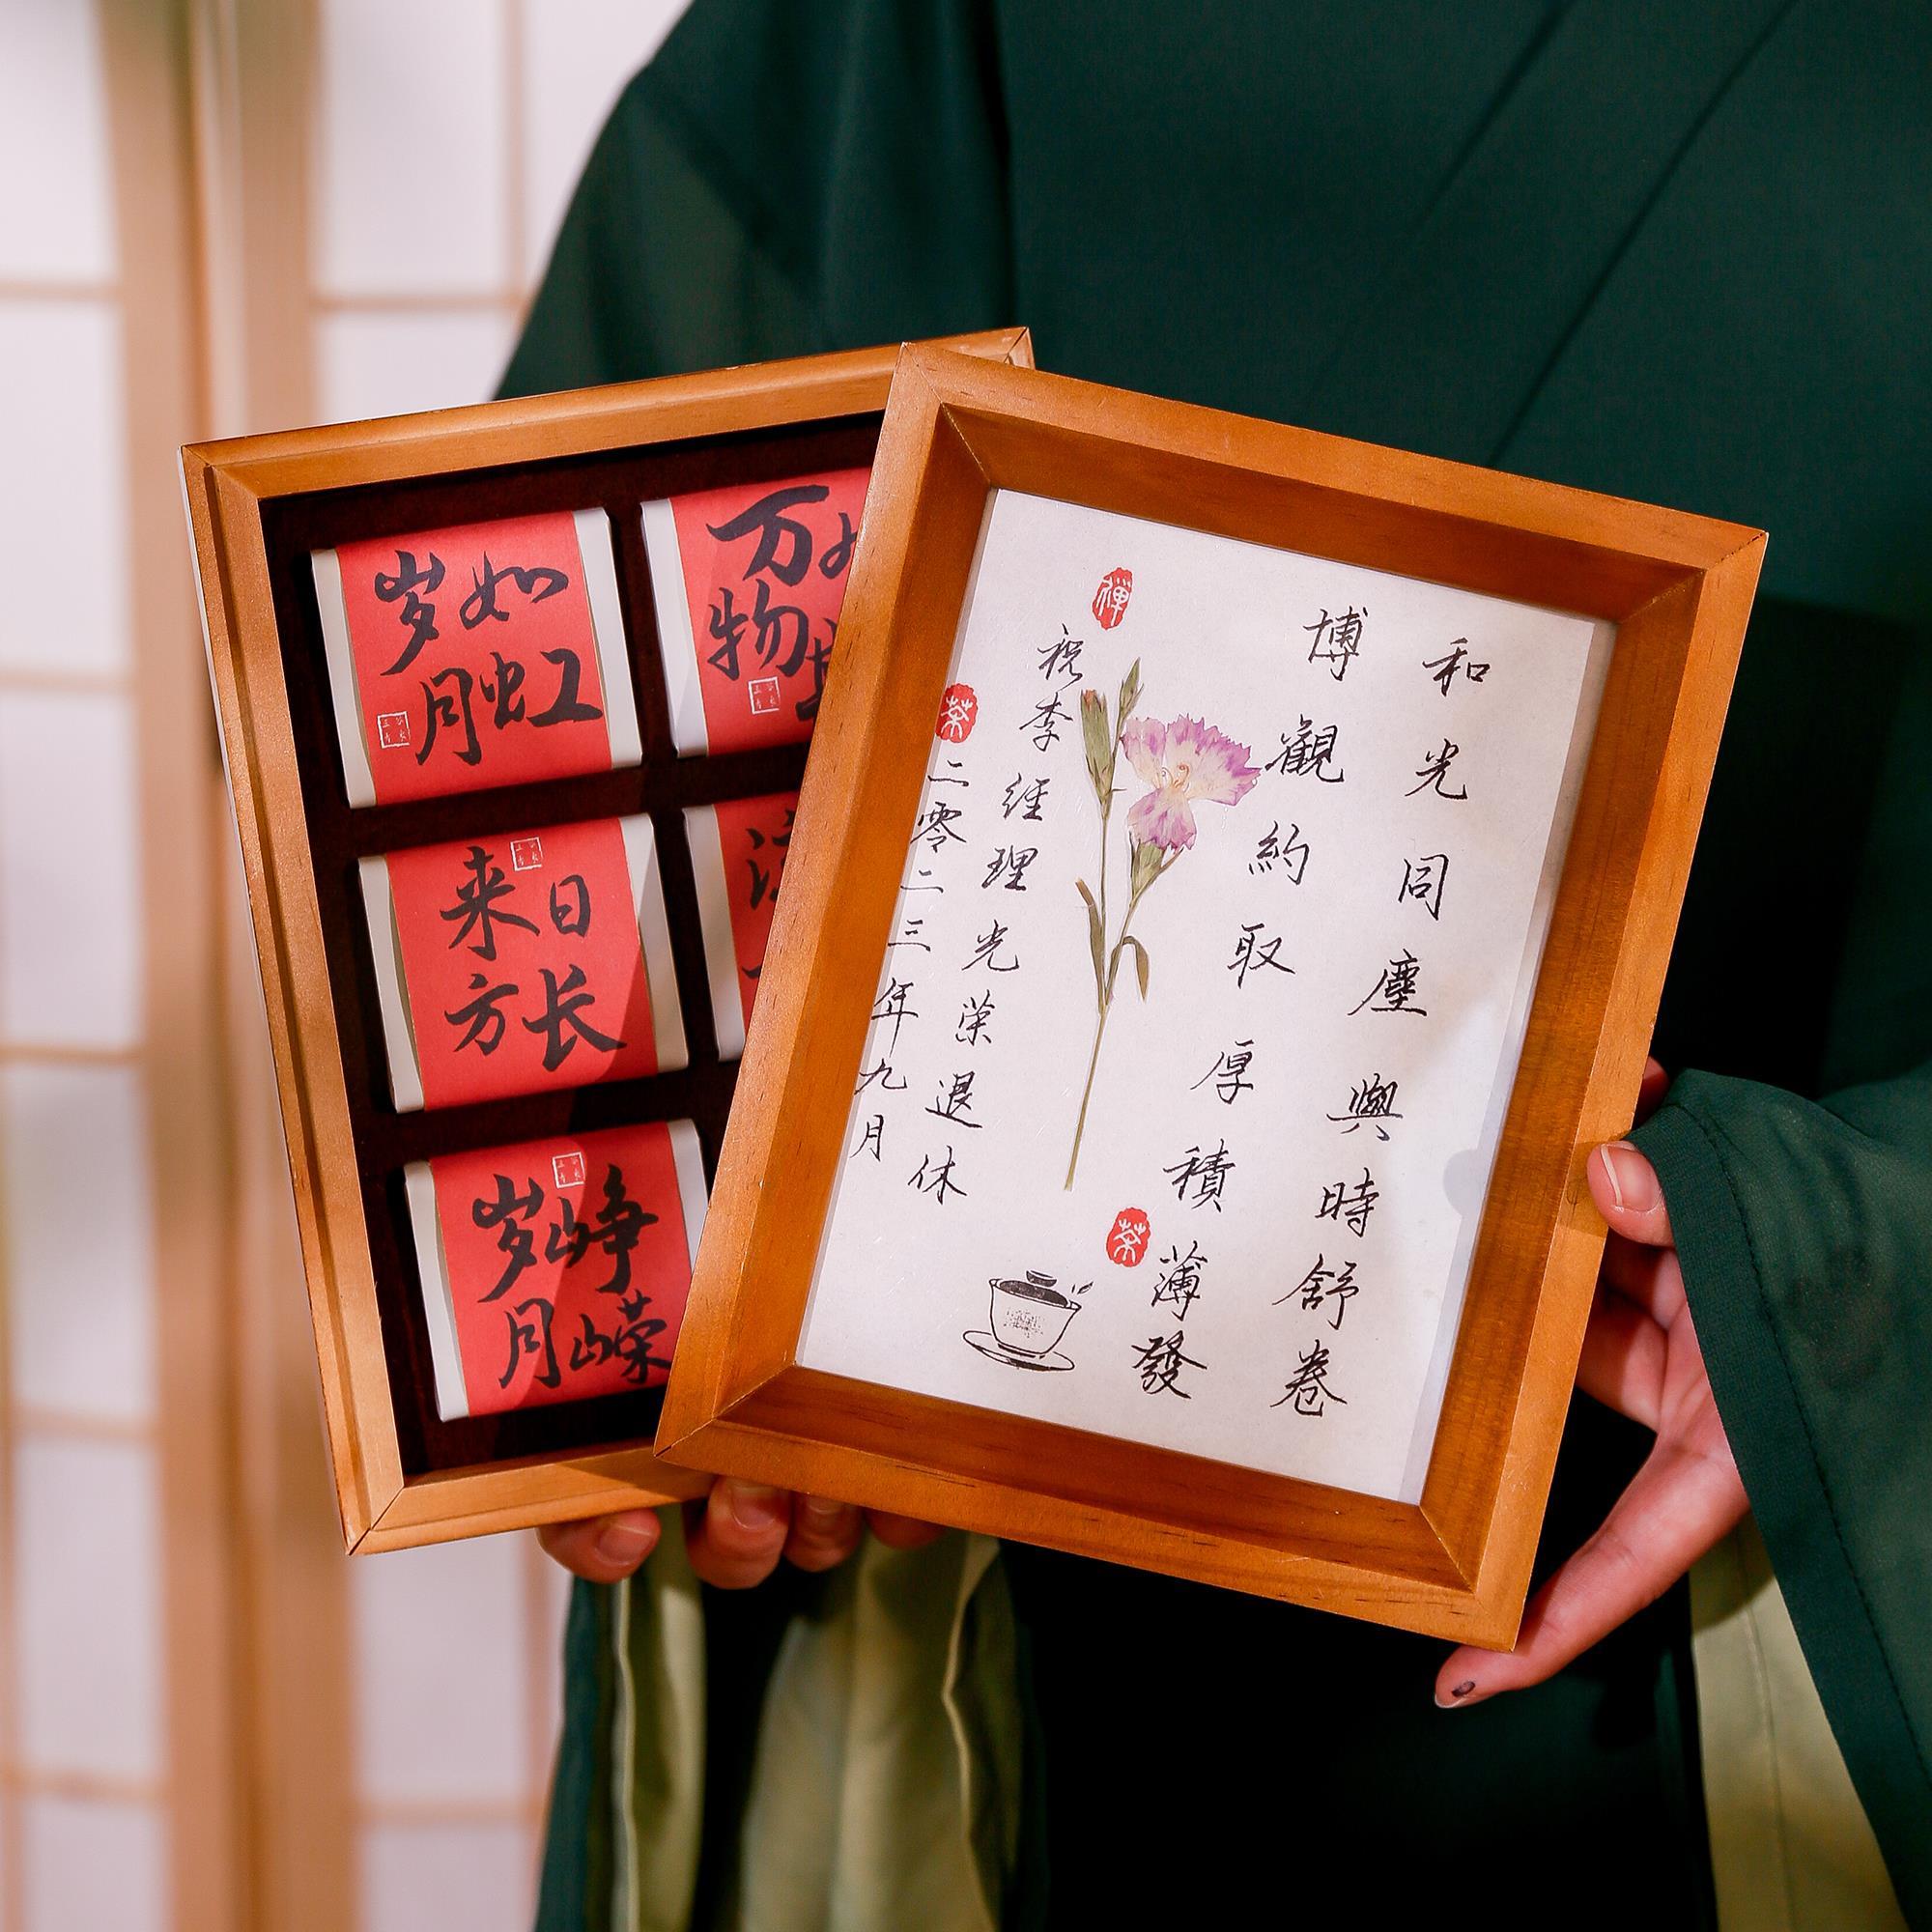 和光同塵與時舒卷
博觀約取厚積薄發
祝李經理光荣退休
二零二三年九月
禅
茶
茶
岁月如虹
万物
来日方长
岁月峥嵘